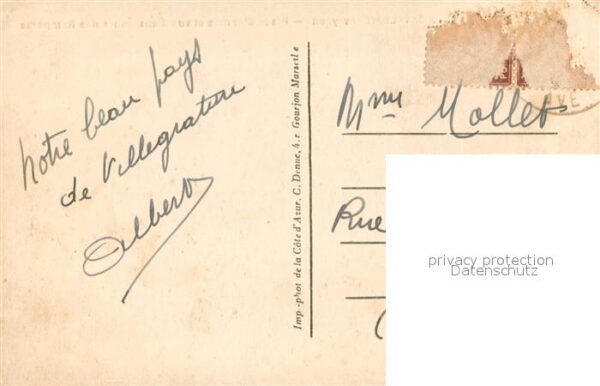 Notre beau pays
de Villegiature
Albert
Imp.-phot de la Côte d'Azur, C. Denue, 4, r. Gourjon Marseille
Mme Mollet
Rue
privacy protection
Datenschutz